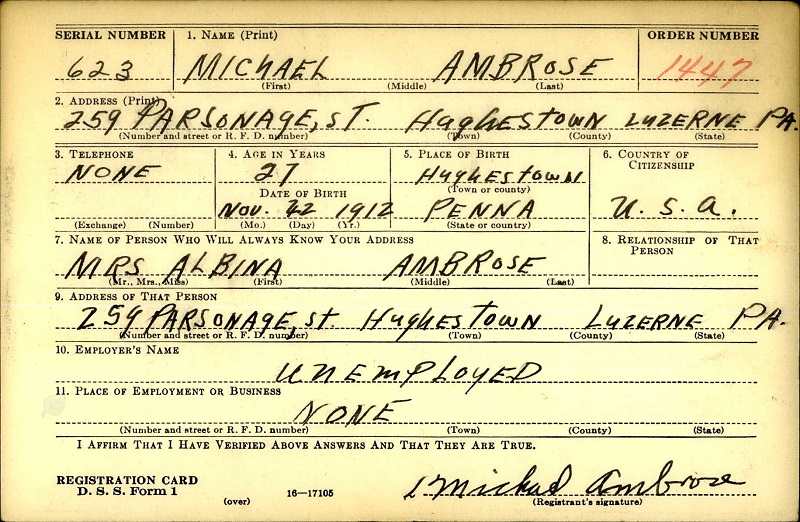 SERIAL NUMBER 1. NAME (Print) ORDER NUMBER
623 MICHAEL AMBROSE 1447
(First) (Middle) (Last)
2. ADDRESS (Print)
259 PARSONAGE, ST. HUGHESTOWN LUZERNE PA.
(Number and street or R. F. D. number) (Town) (County) (State)
3. TELEPHONE 4. AGE IN YEARS 5. PLACE OF BIRTH 6. COUNTRY OF CITIZENSHIP
NONE 27 HUGHESTOWN
DATE OF BIRTH (Town or county)
NOV. 22 1912 PENNA U. S. A.
(Exchange) (Number) (Mo.) (Day) (Yr.) (State or country)
7. NAME OF PERSON WHO WILL ALWAYS KNOW YOUR ADDRESS 8. RELATIONSHIP OF THAT PERSON
MRS ALBINA AMBROSE
(Mr., Mrs., Miss) (First) (Middle) (Last)
9. ADDRESS OF THAT PERSON
259 PARSONAGE, ST. HUGHESTOWN LUZERNE PA.
(Number and street or R. F. D. number) (Town) (County) (State)
10. EMPLOYER'S NAME
UNEMPLOYED
11. PLACE OF EMPLOYMENT OR BUSINESS
NONE
(Number and street or R. F. D. number) (Town) (County) (State)
I AFFIRM THAT I HAVE VERIFIED ABOVE ANSWERS AND THAT THEY ARE TRUE.
REGISTRATION CARD
D. S. S. Form 1 16—17105 Michael Ambrose
(over) (Registrant's signature)